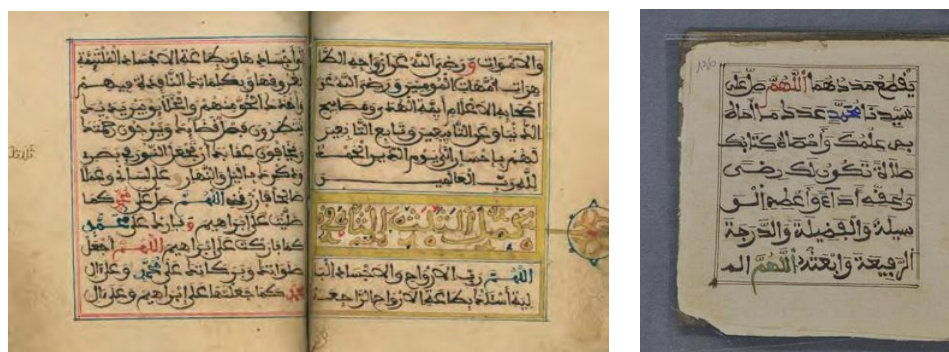 والاموات ورضي الله عن ازواجه الطا
هرات امهات المومنين ورضي الله عن
اصحابه الاعلام أيمة الهدى ومصابيح
الدنيا وعن التابعين وتابع التابعين
لهم بإحسان إلى يوم الدين الحمد
لله رب العالمين
الثاني
اللهم رب الارواح والاجساد البا
لية أسئلك بطاعة الارواح الراجعة
إلى أجسادها وبطاعة الاجساد الملتيمة
بعروقها وبكلماتك النافذة فيهم
وأخذك الحق منهم والخلايق بين يديك
ينتظرون فصل قضايك ويرجون رحمتك
ويخافون عقابك أن تجعل النور في بصري
وذكرك بالليل والنهار على لساني وعملا
صالحا فارزقني اللهم صل على محمد كما
صليت على ابراهيم وبارك على محمد
كما باركت على ابراهيم اللهم اجعل
صلواتك وبركاتك على محمد وعلى ءال
محمد كما جعلتها على ابراهيم وعلى ءال
يقطع مددهما اللهم صل على
سيدنا محمد عدد ما أحاط
به علمك وأحصاه كتابك
صلاة تكون لك رضى
ولحقه أداء وأعطه الو
سيلة والفضيلة والدرجة
الرفيعة وابعثه اللهم الم